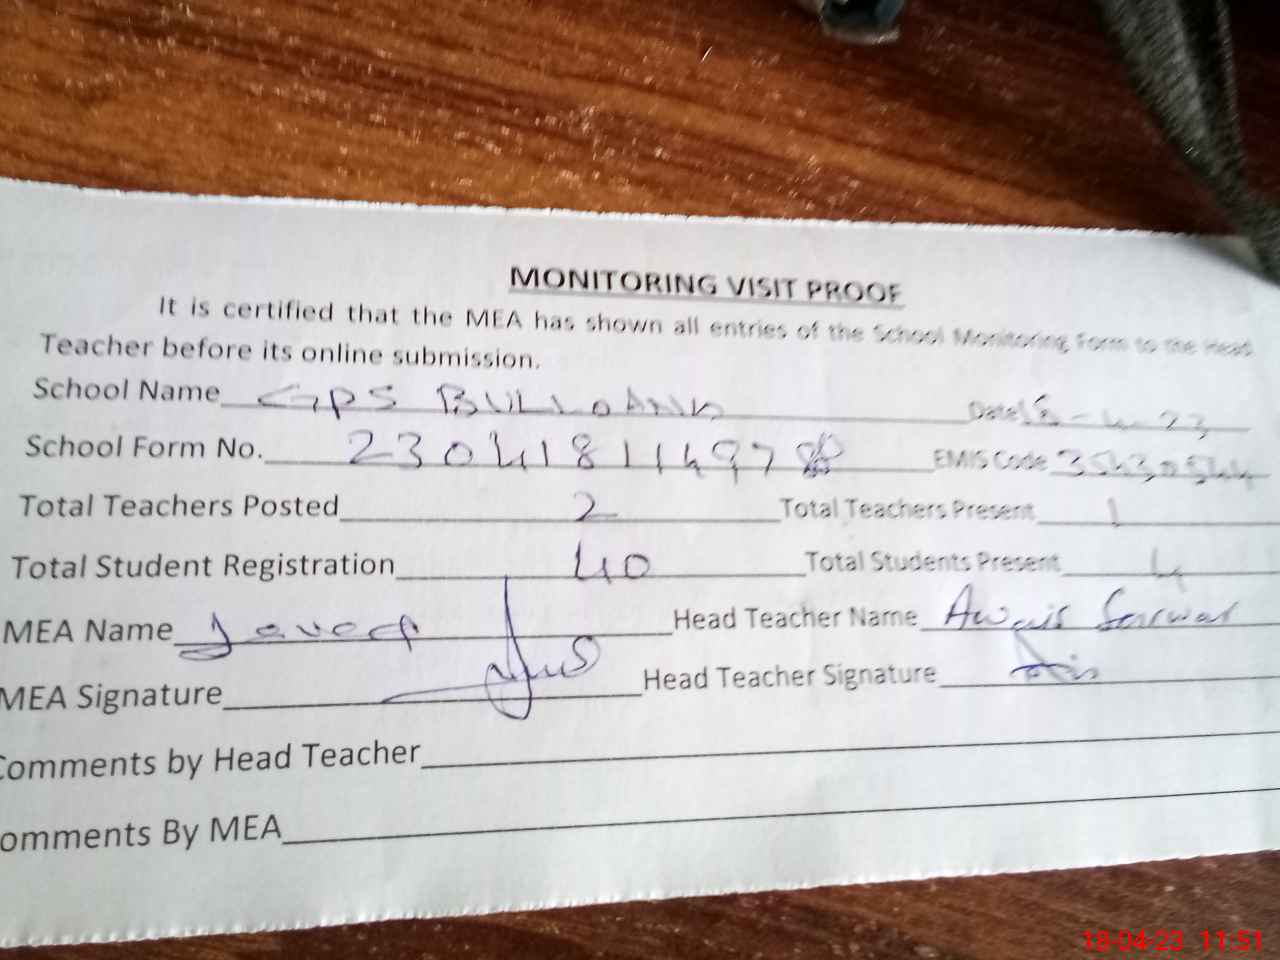 MONITORING VISIT PROOF
It is certified that the MEA has shown all entries of the School Monitoring Form to the Head
Teacher before its online submission.
School Name GPS BULLOANA Date 18-4-23
School Form No. 230418114978 EMIS Code 35430544
Total Teachers Posted 2 Total Teachers Present 1
Total Student Registration 40 Total Students Present 4
MEA Name Javed Head Teacher Name Awais Sarwar
MEA Signature Head Teacher Signature
Comments by Head Teacher
omments By MEA
18-04-23 11:51